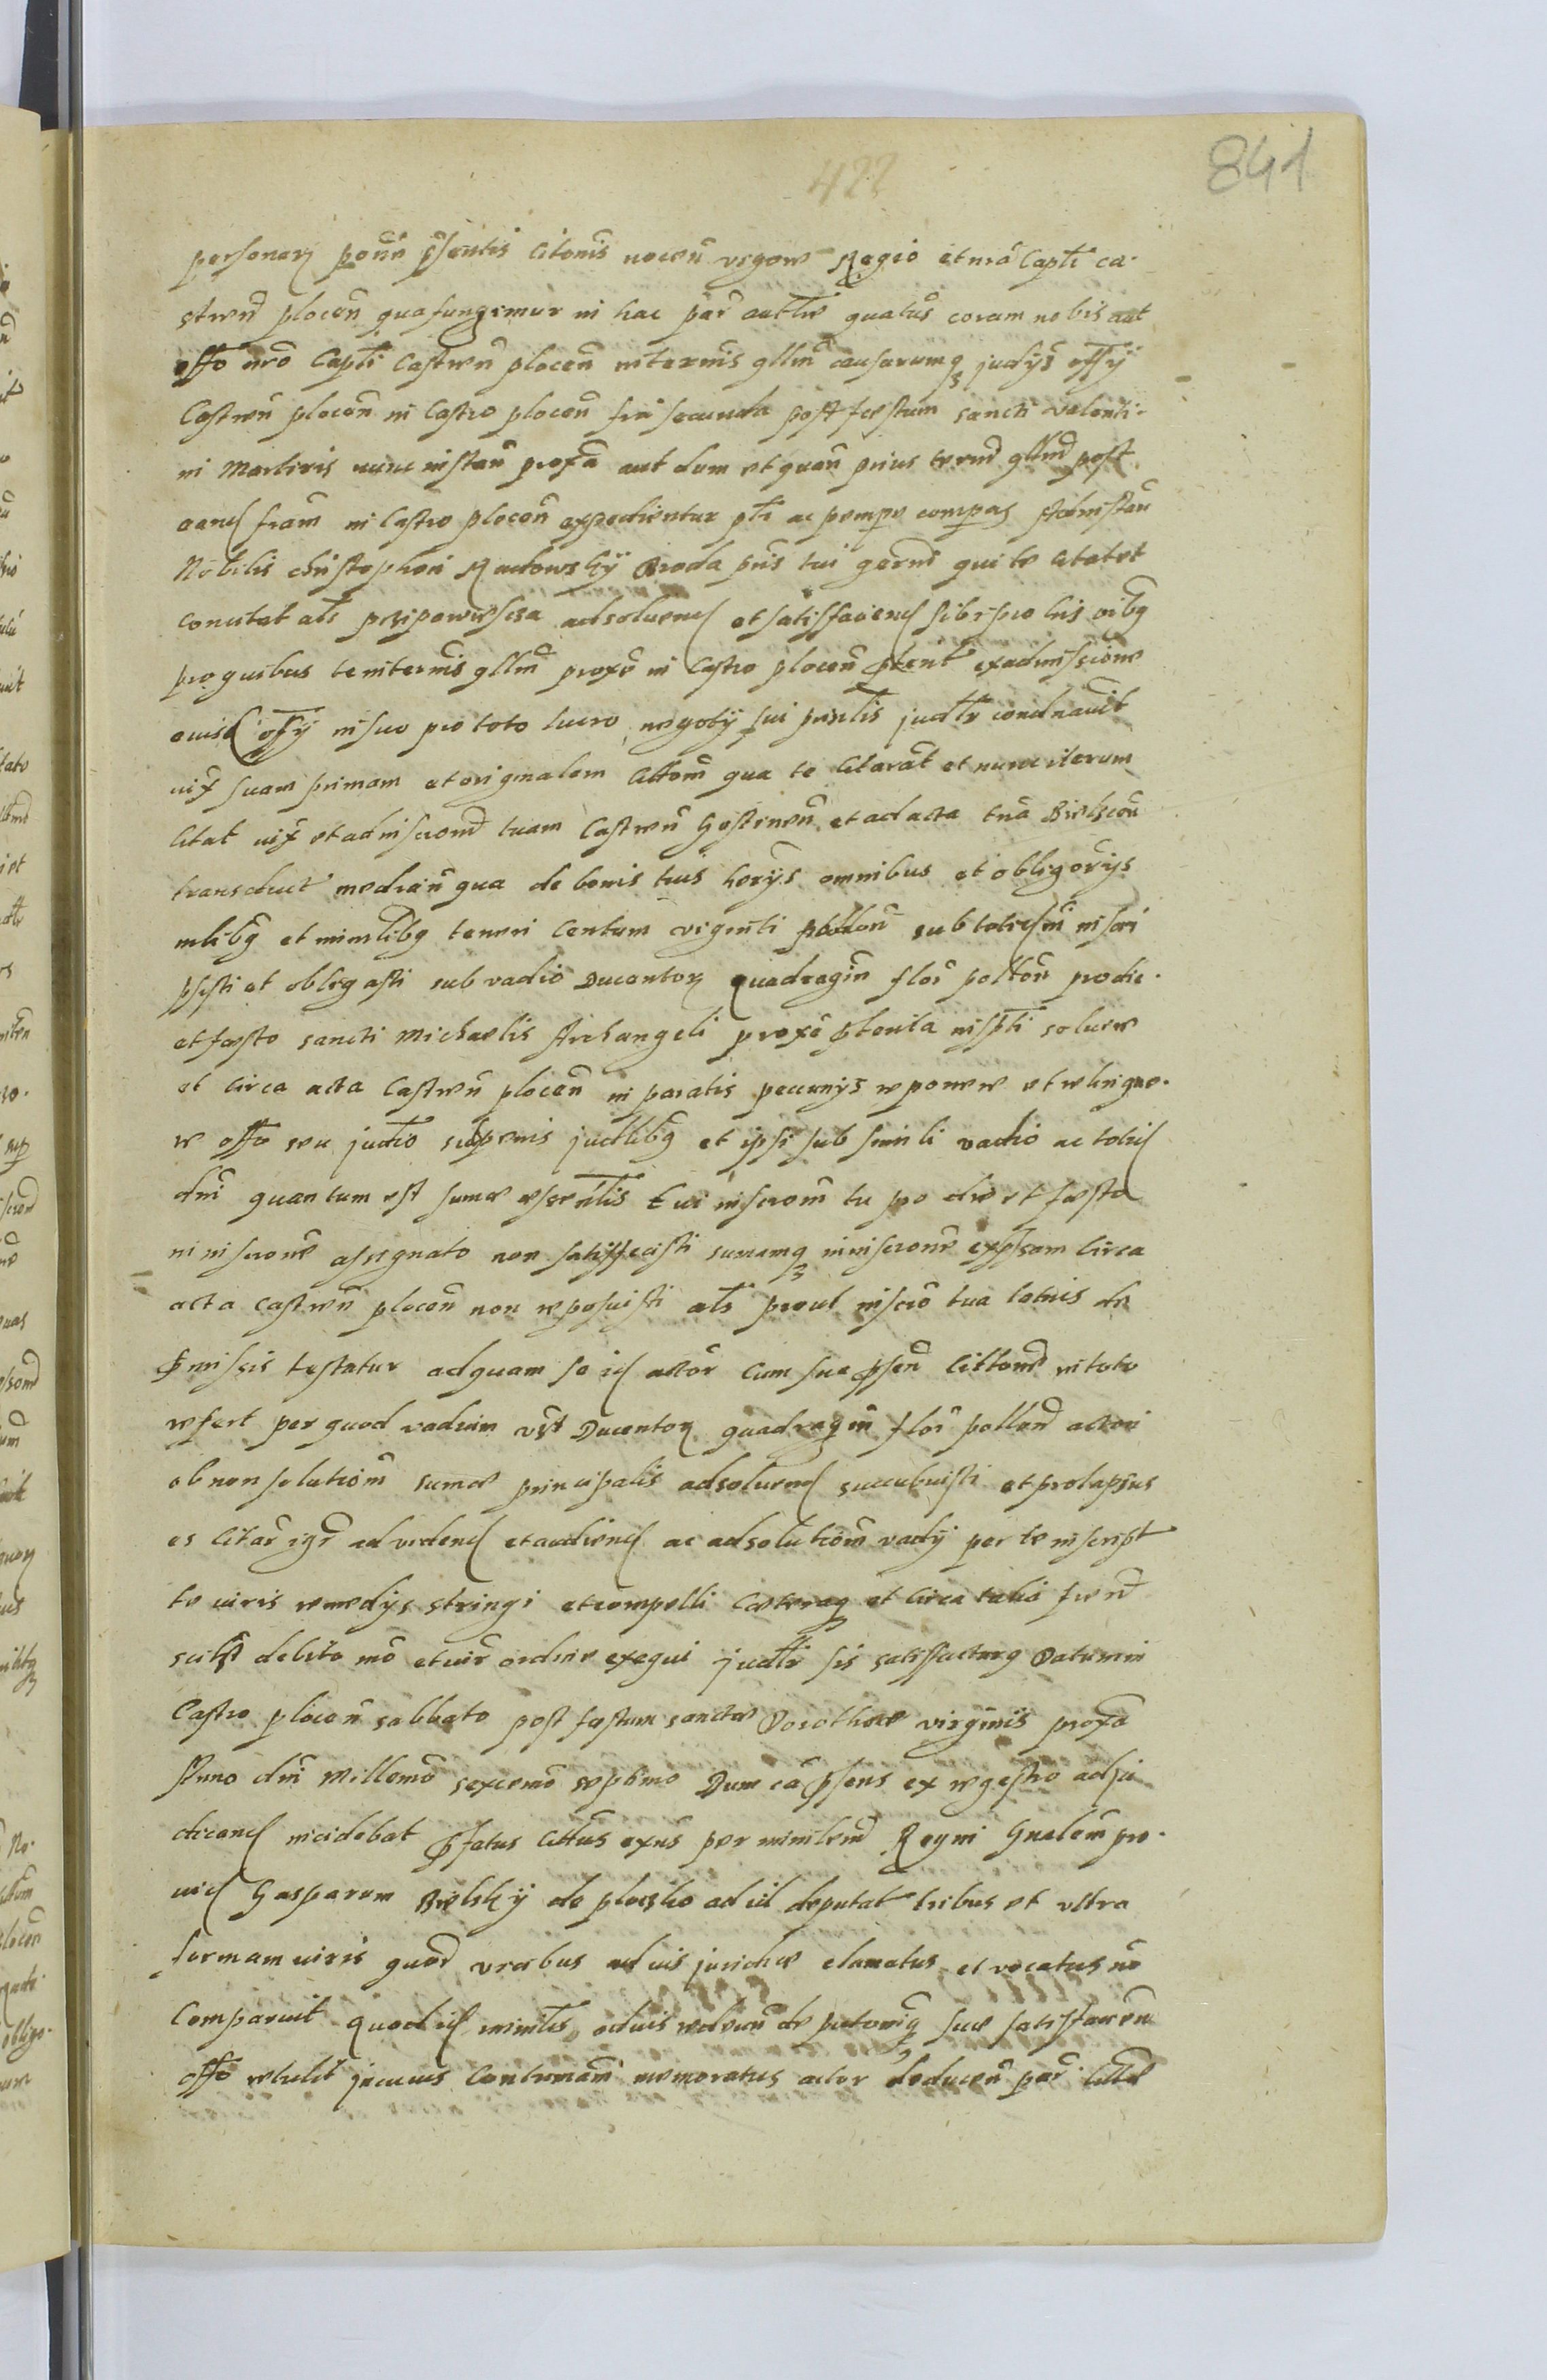 422
841
personaɽ ponñ pñsentis litonis nocen̄ vigore Regio et nrō Capti ca-
stren̄ plocen̄ qua fungimur in hac par̄ autte quatus coram nobis aut
offo nrō Capti Castren̄ plocen̄ in terminis gllm̄ causarumq judys̄ offy
Castren̄ plocen̄ in Castro plocen̄ fria secunda post festum sancti valenti-
ni Martiris nunc instan̄ proxā aut dum et quan̄ prius termi gllnd post
eand fram̄ in Castro plocen̄ expedientur ptr ac pempe compas Ad instan̄
Nobilis christophori Radowsky Broda pris tui germi qui te citat et
concitat als przipowiescza ad soluend et satisfaciend sibi pro his oibq
pro quibus te in terminis gllm̄ proxe in Castro plocen̄ ptent ex admissione
eiusd offy in suo pro toto lucro negoty sui pnntis judtr condnauit
iux suam primam et originalem Cittom̄ qua te Citarat et nunc iterum
Citat iux et ad inscrond tuam Castren̄ Gostinen̄ et ad acta tna Bielscen̄
transduct median̄ qua de bonis tuis herys omnibus et obligorys
mlibq et inmlibq teneri Centum viginti pollon̄ sub toties̄m inscri
psisti et obligasti sub vadio Ducentoɽ quadragin̄ flor̄ pollon̄ pro die
et festo sancti Michaelis Archangeli proxe pterita ... soluere
et circa acta Castren̄ plocen̄ in paratis pecunys reponere et relinque-
re offo seu judio supremis judlibq et ipsi sub simili vadio ac totid
dni quantum est sume essentlis Cui inscrom̄ tu pro die et festo
in inscrone assignato non satisfecisti sumamq in inscrone expssam Circa
acta Castren̄ plocen̄ non reposuisti als prout inscro tua latius de
pmissis testatur ad quam se id actor Cum sua psen̄ Cittone in toto
refert per quod vadium vst Ducentoɽ quadragin̄ flor̄ pollond actori
ob non solutiom̄ sume principalis ad soluend succubuisti et prolapsus
es Citar̄ igr̄ ad vidend et audiend ac ad solutiom̄ vady per te inscript
te iuris remedys stringi et compelli Cæteraq et Circa talia fiend
... debito mō et iur̄ ordine exequi judtr sis satisfacturq Datum in
Castro plocen̄ sabbato post festum sanctæ Dorotheæ virginis proxō
Anno dni Millemō sexcemō septimo Dum cā psens ex regestro adju
dicand incidebat pfatus Cittus exns per ministrm̄ Regni Gnalem pro-
uid Gasparem Bielsky de plocsko ad id deputat tribus et vltra
formam iuris quor̄ vicibus ad ius juridice clamatus et vocatus nō
Comparuit quod id ministr ad uis redeun̄ deputoniq sue satisfacien̄
offo retulit jn cuius Contumam̄ memoratus actor deducen̄ par̄ Citta